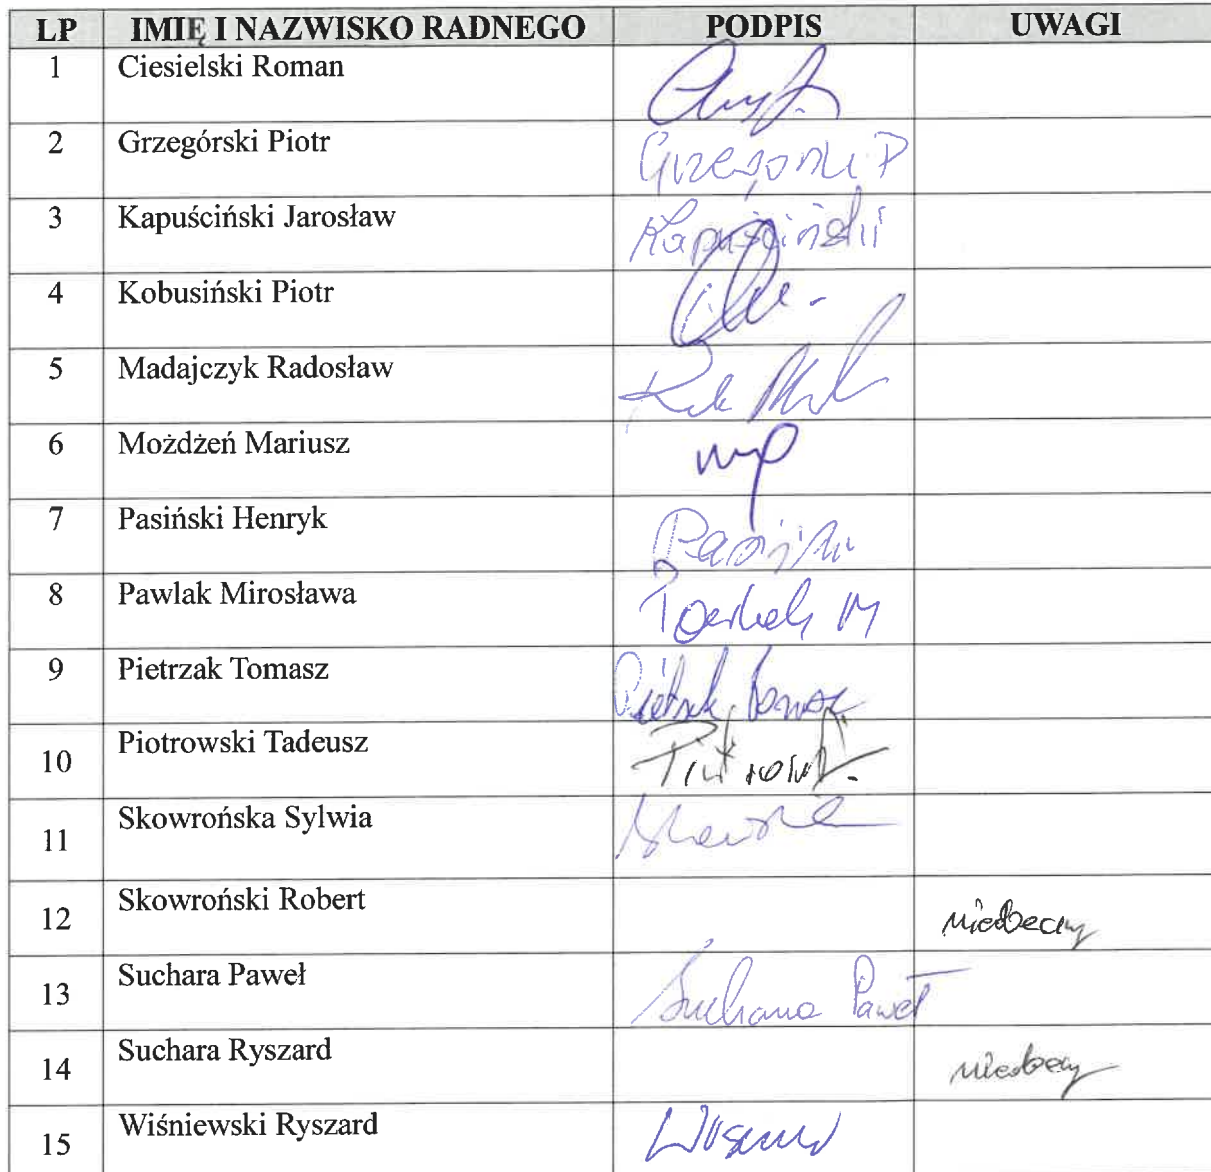 LP IMIĘ I NAZWISKO RADNEGO PODPIS UWAGI
1 Ciesielski Roman
2 Grzegórski Piotr Grzegórski P
3 Kapuściński Jarosław Kapuściński
4 Kobusiński Piotr
5 Madajczyk Radosław
6 Możdżeń Mariusz
7 Pasiński Henryk Pasiński
8 Pawlak Mirosława Pawlak M
9 Pietrzak Tomasz Pietrzak Tomasz
10 Piotrowski Tadeusz
11 Skowrońska Sylwia
12 Skowroński Robert nieobecny
13 Suchara Paweł Suchara Paweł
14 Suchara Ryszard nieobecny
15 Wiśniewski Ryszard